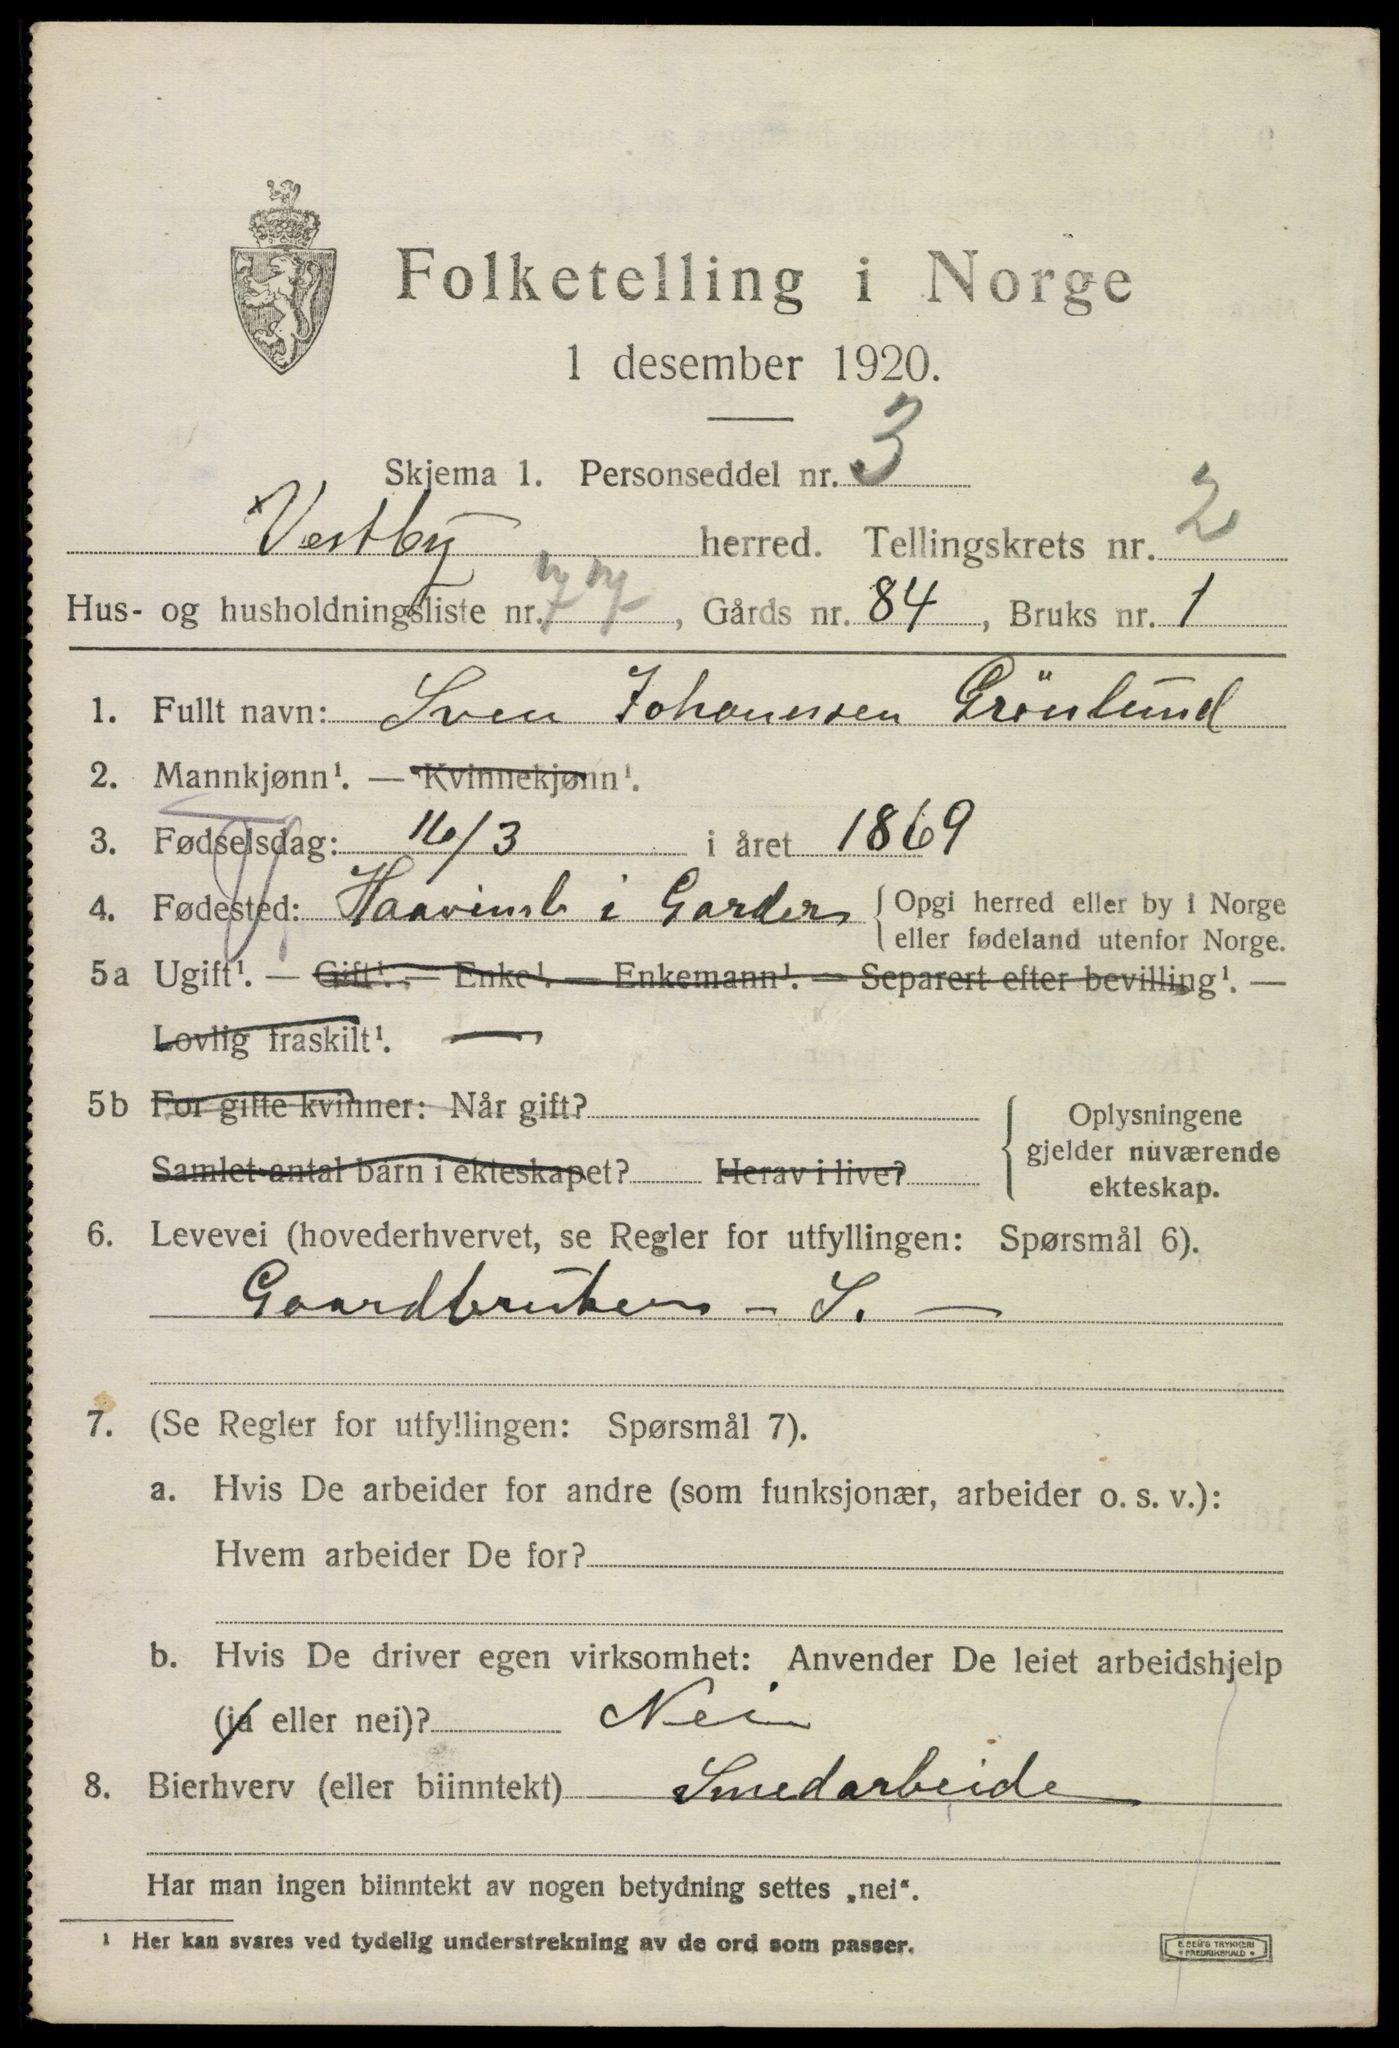 Folketelling i Norge
1 desember 1920.
Skjema 1. Personseddel nr. 3
Vestby herred. Tellingskrets nr. 2
Hus- og husholdningsliste nr. 77, Gårds nr. 84, Bruks nr. 1
1. Fullt navn: Sven Johannesen Grönlund
2. Mannkjønn¹. — Kvinnekjønn¹.
3. Fødselsdag: 16/3 i året 1869
4. Fødested: i Garder { Opgi herred eller by i Norge
eller fødeland utenfor Norge.
5a Ugift¹. — Gift¹. — Enke¹. — Enkemann¹. — Separert efter bevilling¹. —
Lovlig fraskilt¹. —
5b For gifte kvinner: Når gift?
Samlet antal barn i ekteskapet? Herav i live?
Oplysningene
gjelder nuværende
ekteskap.
6. Levevei (hovederhvervet, se Regler for utfyllingen: Spørsmål 6).
Gaardbruker – S. —
7. (Se Regler for utfyllingen: Spørsmål 7).
a. Hvis De arbeider for andre (som funksjonær, arbeider o. s. v.):
Hvem arbeider De for?
b. Hvis De driver egen virksomhet: Anvender De leiet arbeidshjelp
(ja eller nei)? Nei
8. Bierhverv (eller biinntekt) Smedarbeide
Har man ingen biinntekt av nogen betydning settes „nei“.
¹ Her kan svares ved tydelig understrekning av de ord som passer.
E. SEM'S TRYKKERI
FREDRIKSHALD